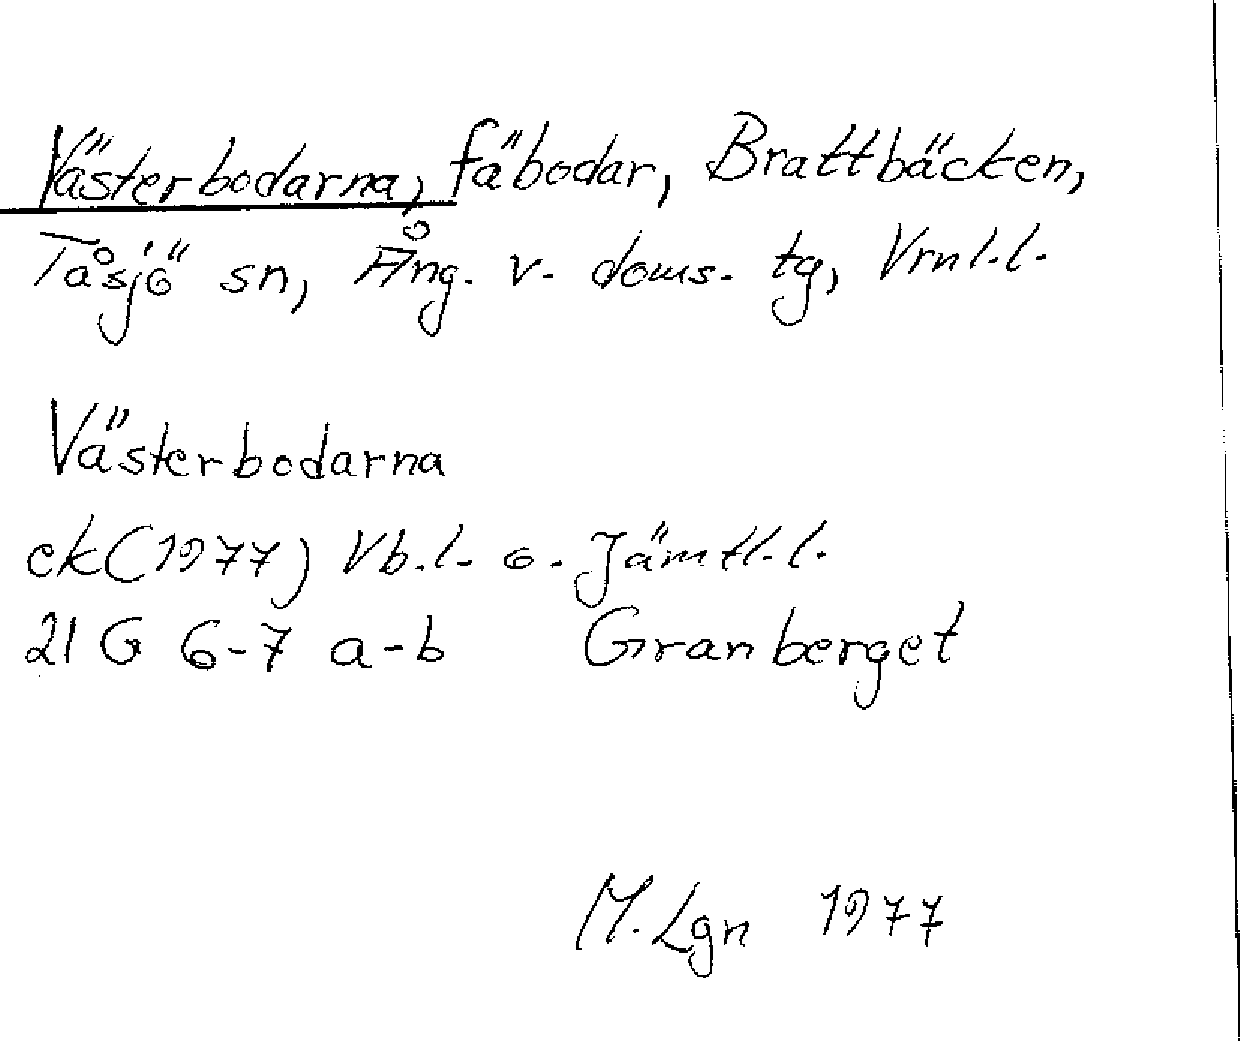 Västerbodarna, fäbodar, Brattbäcken,
Tåsjö sn, Ång. v. doms. tg, Vrnl.l.
Västerbodarna
ek (1977) Vb.l. o. Jämtl.l.
21 G 6-7 a-b Granberget
M. Lgn 1977